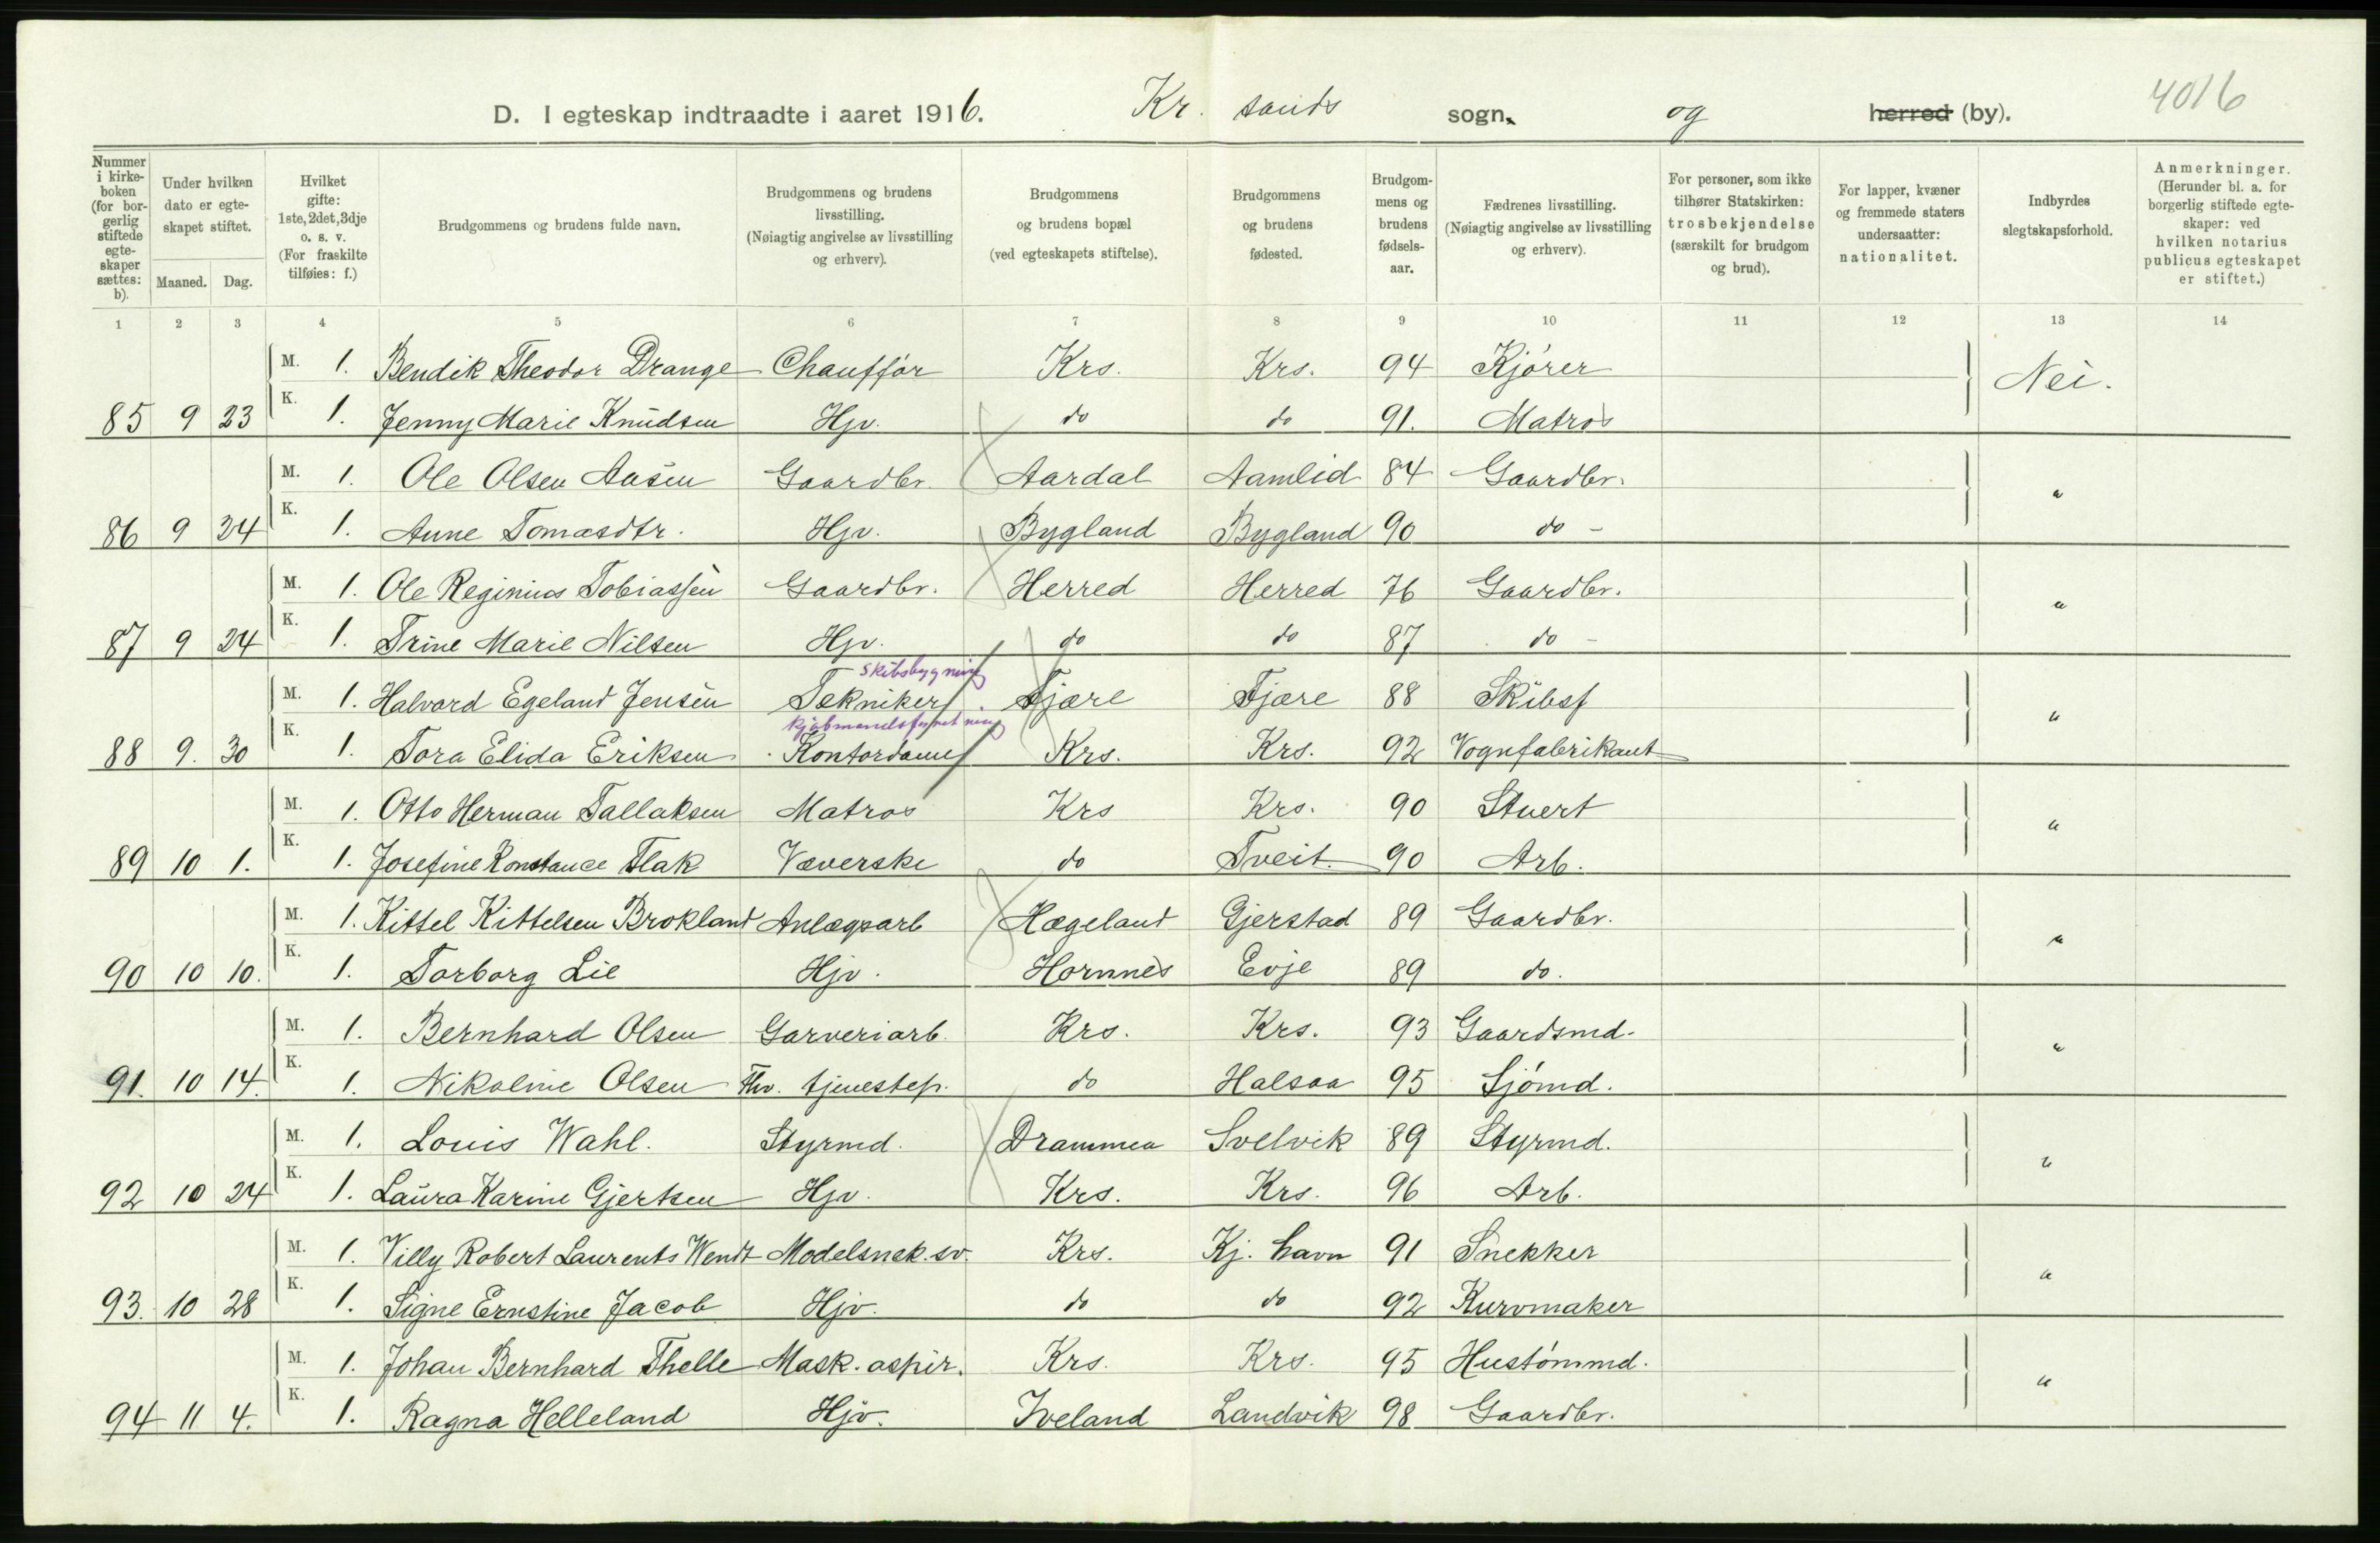 D. I egteskap indtraadte i aaret 1916. Kr. sands sogn. og herred (by). 4016
Nummer i kirkeboken (for borgerlig stiftede egteskaper sættes: b).
Under hvilken dato er egteskapet stiftet.
Maaned. Dag.
Hvilket gifte: 1ste, 2det, 3dje o. s. v. (For fraskilte tilføies: f.)
Brudgommens og brudens fulde navn.
Brudgommens og brudens livsstilling. (Nøiagtig angivelse av livsstilling og erhverv).
Brudgommens og brudens bopæl (ved egteskapets stiftelse).
Brudgommens og brudens fødested.
Brudgommens og brudens fødselsaar.
Fædrenes livsstilling. (Nøiagtig angivelse av livsstilling og erhverv).
For personer, som ikke tilhører Statskirken: trosbekjendelse (særskilt for brudgom og brud).
For lapper, kvæner og fremmede staters undersaatter: nationalitet.
Indbyrdes slegtskapsforhold.
Anmerkninger. (Herunder bl. a. for borgerlig stiftede egteskaper: ved hvilken notarius publicus egteskapet er stiftet.)
1 2 3 4 5 6 7 8 9 10 11 12 13 14
M. 1. Bendik Theodor Drange Chauffør Krs. Krs. 94 Kjører Nei.
85 9 23 K. 1. Jenny Marie Knudsen Hjv. do do 91. Matros
M. 1. Ole Olsen Aasen Gaardbr. Aardal Aamlid 84 Gaardbr. "
86 9 24 K. 1. Anne Tomasdtr. Hjv. Bygland Bygland 90 do -
M. 1. Ole Reginius Tobiassen Gaardbr. Herred Herred 76 Gaardbr. "
87 9 24 K. 1. Trine Marie Nilsen Hjv. do do 87 do -
skibsbygning
M. 1. Halvard Egeland Jensen Tekniker Fjære Fjære 88 Skibsf "
kjøbmandsforretning
88 9. 30 K. 1. Tora Elida Eriksen Kontordame Krs. Krs. 92 Vognfabrikant
M. 1. Otto Herman Tallaksen Matros Krs Krs. 90 Stuert "
89 10 1. K. 1. Josefine Konstance Flak Væverske do Tveit. 90 Arb.
M. 1. Kittel Kittelsen Brokland Anlægsarb Hægeland Gjerstad 89 Gaardbr. "
90 10 10. K. 1. Torborg Lie Hjv. Hornnes Evje 89 do.
M. 1. Bernhard Olsen Garveriarb. Krs. Krs. 93 Gaardsmd. "
91. 10 14. K. 1. Nikoline Olsen Fhv. tjenestep. do Halsaa 95 Sjømd.
M. 1. Louis Wahl. Styrmd. Drammen Svelvik 89 Styrmd. "
92 10 24 K. 1. Laura Karine Gjertsen Hjv. Krs. Krs. 96 Arb.
M. 1. Villy Robert Laurents Wendt Modelsnek.sv. Krs. Kj. havn 91 Snekker "
93. 10 28 K. 1. Signe Ernstine Jacob Hjv. do do 92 Kurvmaker
M. 1. Johan Bernhard Thelle Mask. aspir. Krs. Krs. 95 Hustømmd. "
94 11 4. K. 1. Ragna Helleland Hjv. Iveland Landvik 98 Gaardbr.